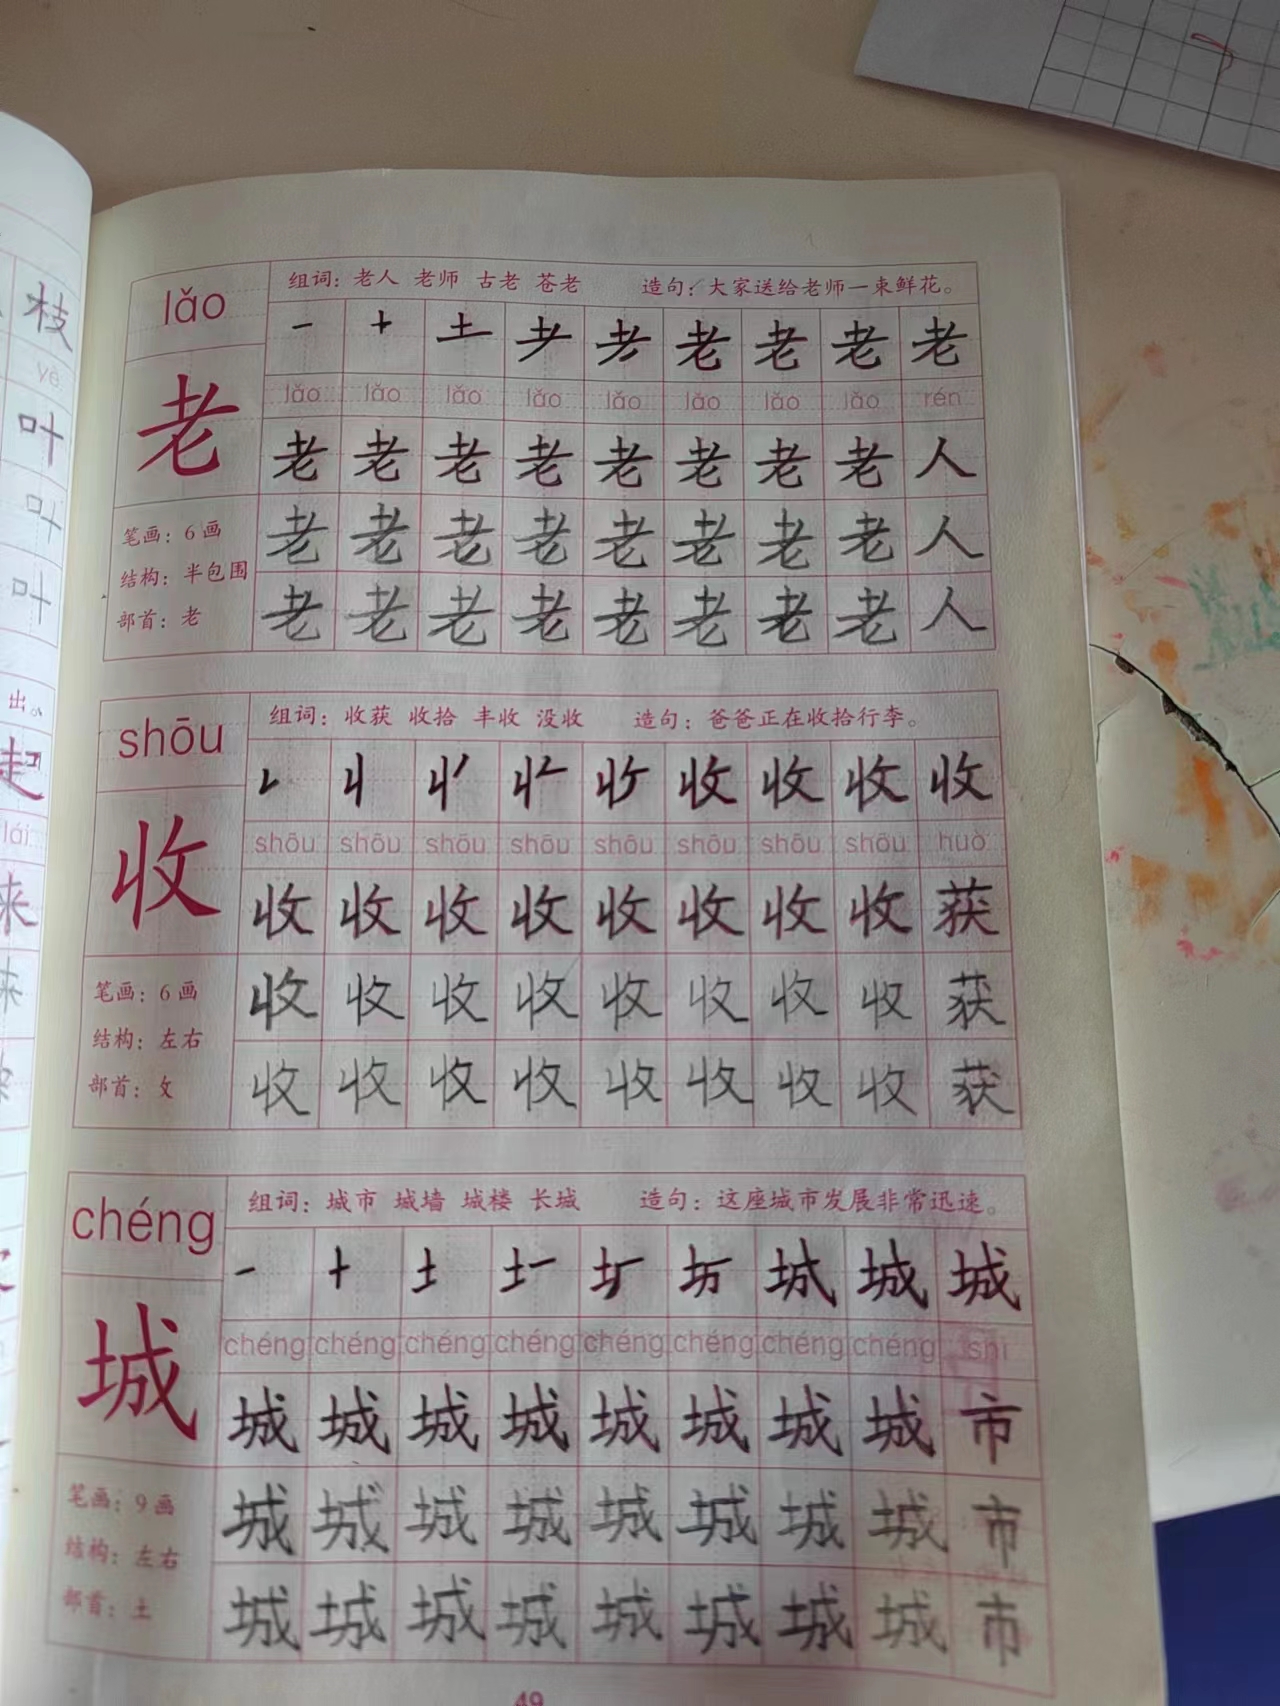 枝
yè
叶
叶
叶
出。
起
lái
来
来
lǎo
组词：老人 老师 古老 苍老 造句：大家送给老师一束鲜花。
一 十 土 耂 老 老 老 老
lǎo lǎo lǎo lǎo lǎo lǎo lǎo lǎo rén
老
老 老 老 老 老 老 老 老 人
笔画：6画
结构：半包围
部首：老
老 老 老 老 老 老 老 老 人
老 老 老 老 老 老 老 老 人
shōu
组词：收获 收拾 丰收 没收 造句：爸爸正在收拾行李。
丩 收 收 收 收
shōu shōu shōu shōu shōu shōu shōu shōu huò
收
收 收 收 收 收 收 收 收 获
笔画：6画
结构：左右
部首：攵
收 收 收 收 收 收 收 收 获
收 收 收 收 收 收 收 收 获
chéng
组词：城市 城墙 城楼 长城 造句：这座城市发展非常迅速。
一 十 土 城 城 城
chéng chéng chéng chéng chéng chéng chéng chéng shì
城
城 城 城 城 城 城 城 城 市
笔画：9画
结构：左右
部首：土
城 城 城 城 城 城 城 城 市
城 城 城 城 城 城 城 城 市
49